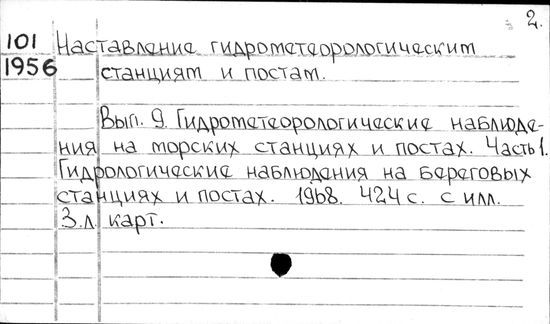 2.
101 Наставление гидрометеорологическим
1956 станциям и постам.
Вып. 9. Гидрометеорологические наблюде-
ния на морских станциях и постах. Часть 1.
Гидрологические наблюдения на береговых
станциях и постах. 1968. 424 с. с илл.
3 л. карт.